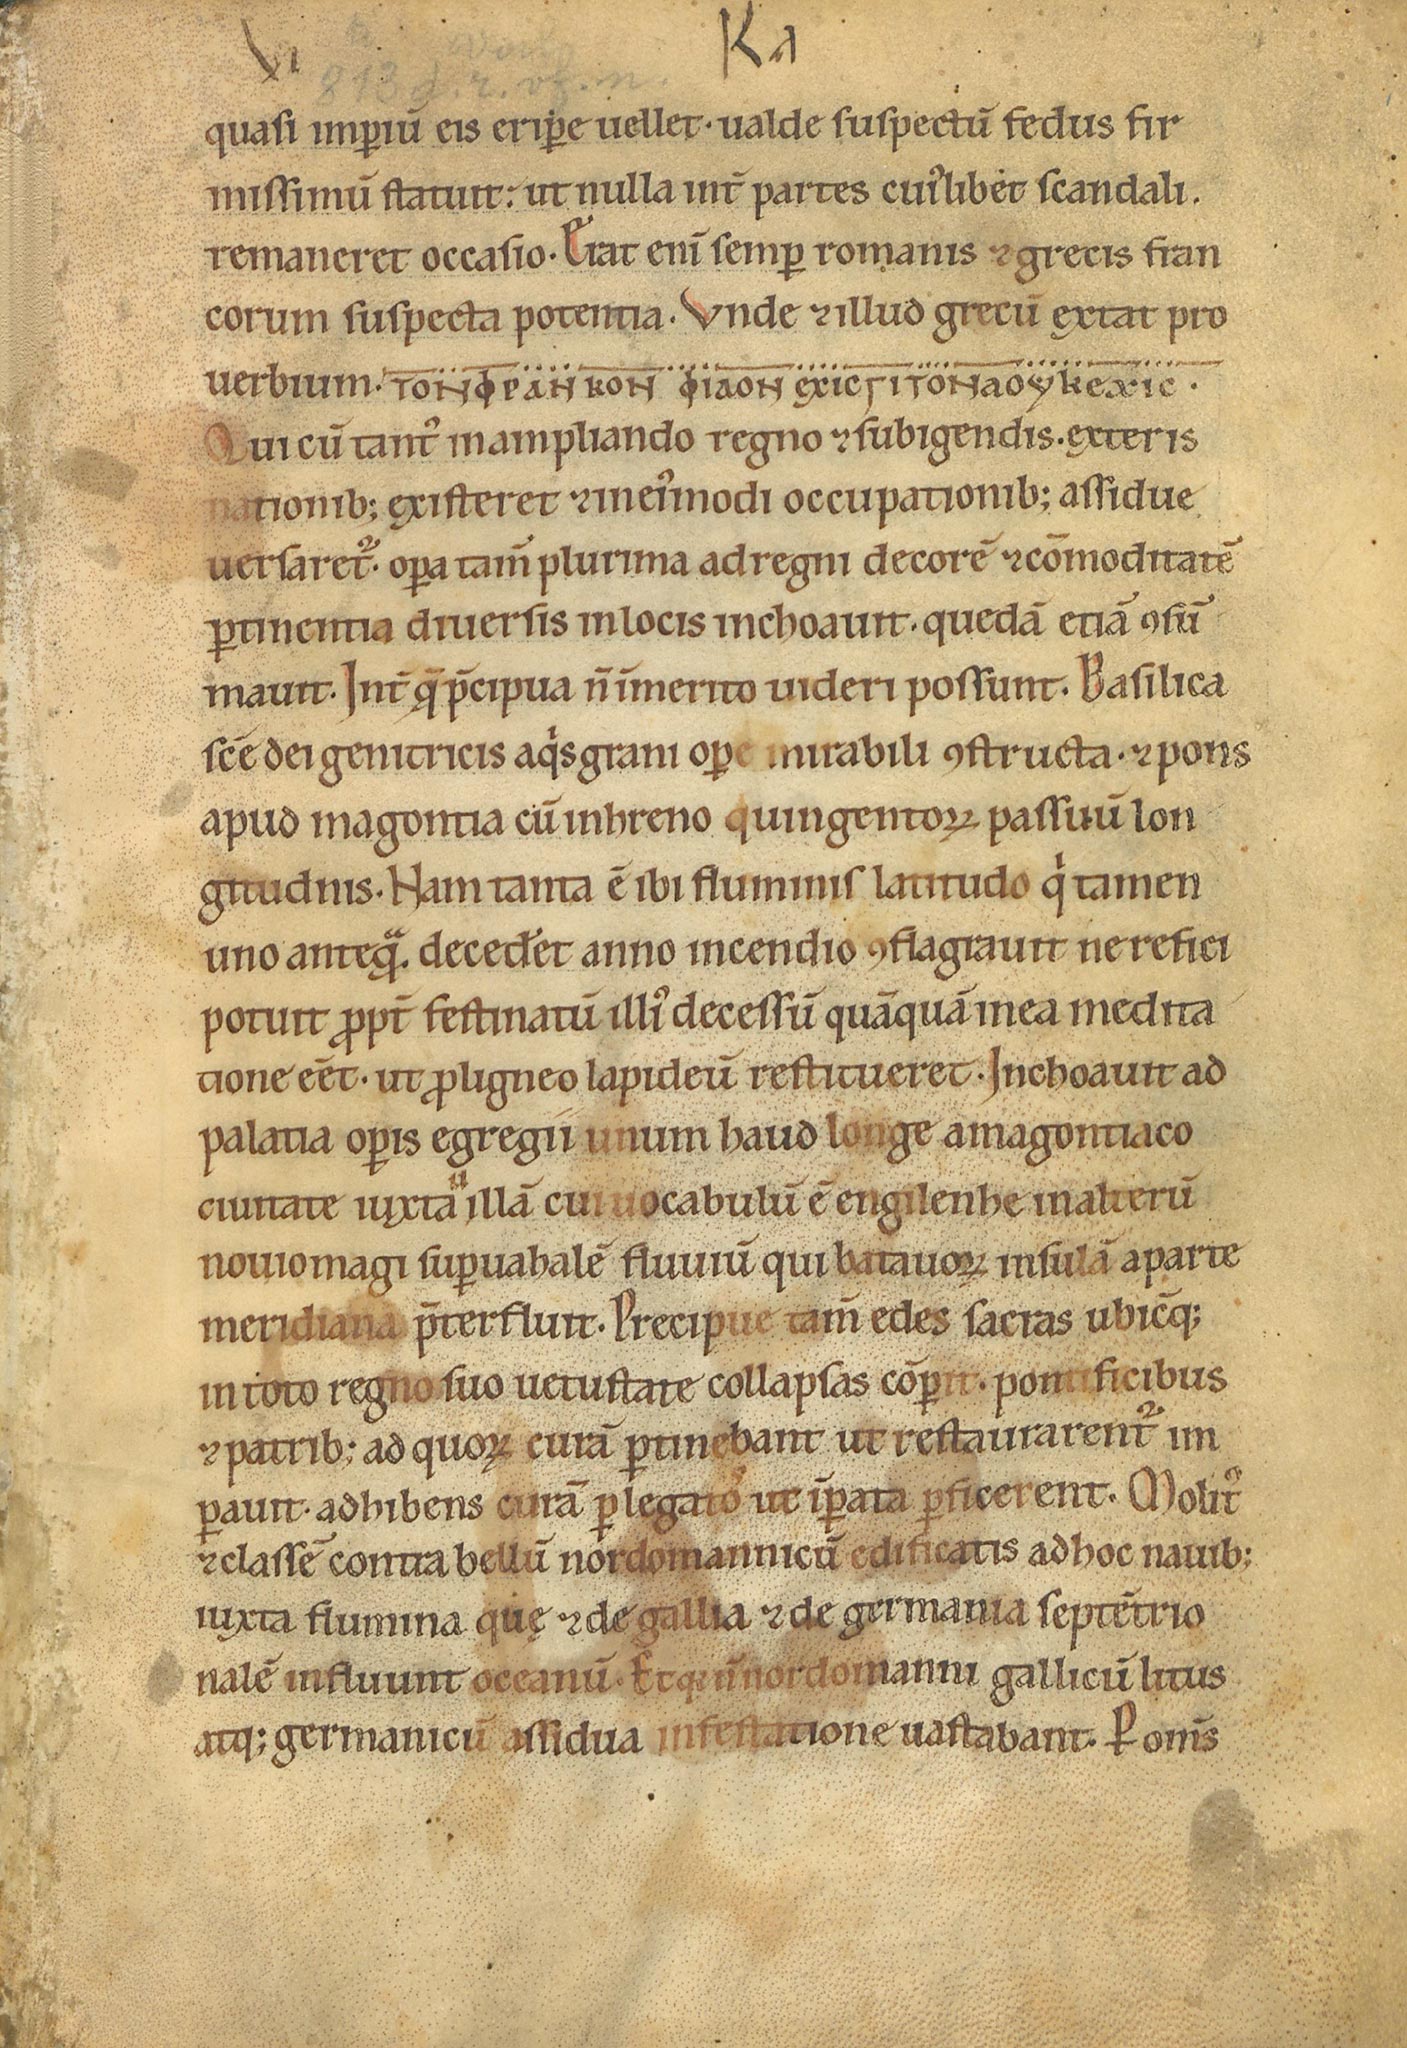 VI Ka
813 d. r. vf. m.
quasi imꝑiū eis eriꝑe uellet· ualde suspectū fedus fir
missimū statuit: ut nulla int̄ partes cuiꝰlibet scandali.
remaneret occasio. Erat eni̅ semꝑ romanis ⁊ grecis fran
corum suspecta potentia. Vnde ⁊ illud grecū extat pro
uerbium. ΤΟΝΦΡΑΝΚΟΝ ΦΙΛΟΝ ΕΧΙC ΓΙΤΟΝΑ ΟΥΚ ΕΧΙC.
Qui cū tantꝰ in ampliando regno ⁊ subigendis. exteris
nationib; existeret ⁊ in eiꝰmodi occupationib; assidue
uersaret᷑. oꝑa tam̄ plurima ad regni decorē ⁊ cōmoditatē
ꝑtinentia diuersis in locis inchoauit. quedā etiā ꝯsū
mauit. Int̄ q̄ p̄cipua n̄ īmerito uideri possunt. Basilica
scē dei genitricis aqͥsgrani oꝑe mirabili ꝯstructa. ⁊ pons
apud magontiacū in hreno quingentoꝝ passuū lon
gitudnis. Nam tanta ē ibi fluminis latitudo qͥ tamen
uno anteqᷓ. deced̅et anno incendio ꝯflagrauit ne refici
potuit ꝓpt̄ festinatū illiꝰ decessū quāquā in ea medita
tione eēt. ut ꝓ ligneo lapideū restitueret. Inchoauit ad
palatia oꝑis egregii unum haud longe a magontiaco
ciuitate iuxta uillā cui uocabulū ē engilenhe in alterū
nouiomagi suꝑ uahalē fluuiū qui batauoꝝ insulā a parte
meridiana p̄terfluit. Precipue tam̄ edes sacras ubic̄q;
in toto regno suo uetustate collapsas cōꝑit. pontificibus
⁊ patrib; ad quoꝝ curā ꝑtinebant ut restaurarent᷑ im
ꝑauit. adhibens curā ꝑ legatoꝰ ut īꝑata ꝑficerent. Molit᷑
⁊ classē contra bellū nordomannicū edificatis ad hoc nauib;
iuxta flumina quę ⁊ de gallia ⁊ de germania septētrio
nalē influunt oceanū. Et qm̄ nordomanni gallicū litus
atq; germanicū assidua infestatione uastabant. P om̄s